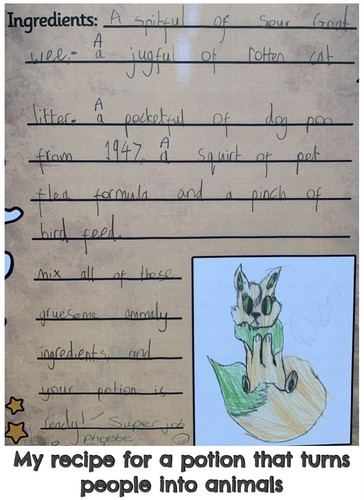 Ingredients: A spitful of sour Goat
wee. A a jugful of rotten cat
litter. A a pocketful of dog poo
from 1947. A a squirt of pet
flea formula and a pinch of
bird feed.
mix all of these
gruesome animaly
ingredients and
your potion is
ready! ✓ Super job
Phoebe
My recipe for a potion that turns
people into animals